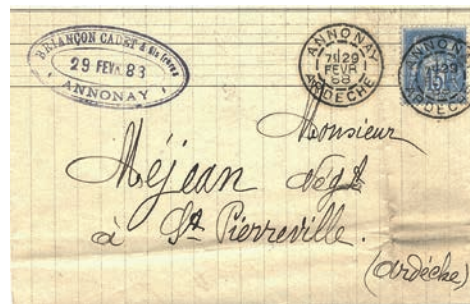 BRIANÇON CADET & Cie frères
29 FEVR 83
ANNONAY
ANNONAY
7E 29
FEVR
88
ARDÈCHE
ANNONAY
29
15
ARDÈCHE
Monsieur
Méjean Négt
à St Pierreville.
(Ardèche)